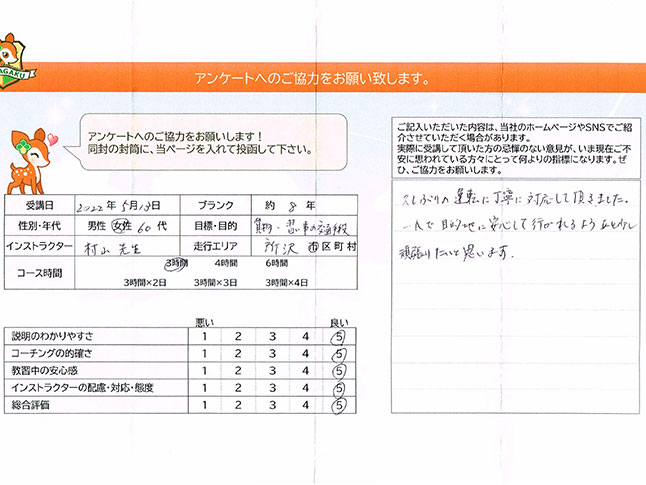 AGAKU
アンケートへのご協力をお願い致します。
アンケートへのご協力をお願いします！
同封の封筒に、当ページを入れて投函して下さい。
ご記入いただいた内容は、当社のホームページやSNSでご紹介させていただく場合があります。
実際に受講して頂いた方の忌憚のない意見が、いま現在ご不安に思われている方々にとって何よりの指標になります。ぜひ、ご協力をお願いします。
受講日 2022年5月13日 ブランク 約 8 年
性別・年代 男性 女性 60 代 目標・目的 買物・習い事の
インストラクター 村山 先生 走行エリア 所沢 市区町村
コース時間 3時間 4時間 6時間
3時間×2日 3時間×3日 3時間×4日
悪い 良い
説明のわかりやすさ 1 2 3 4 5
コーチングの的確さ 1 2 3 4 5
教習中の安心感 1 2 3 4 5
インストラクターの配慮・対応・態度 1 2 3 4 5
総合評価 1 2 3 4 5
久しぶりの運転に丁寧に対応して頂きました。
一人で目的地に安心して行かれるよう
頑張りたいと思います.